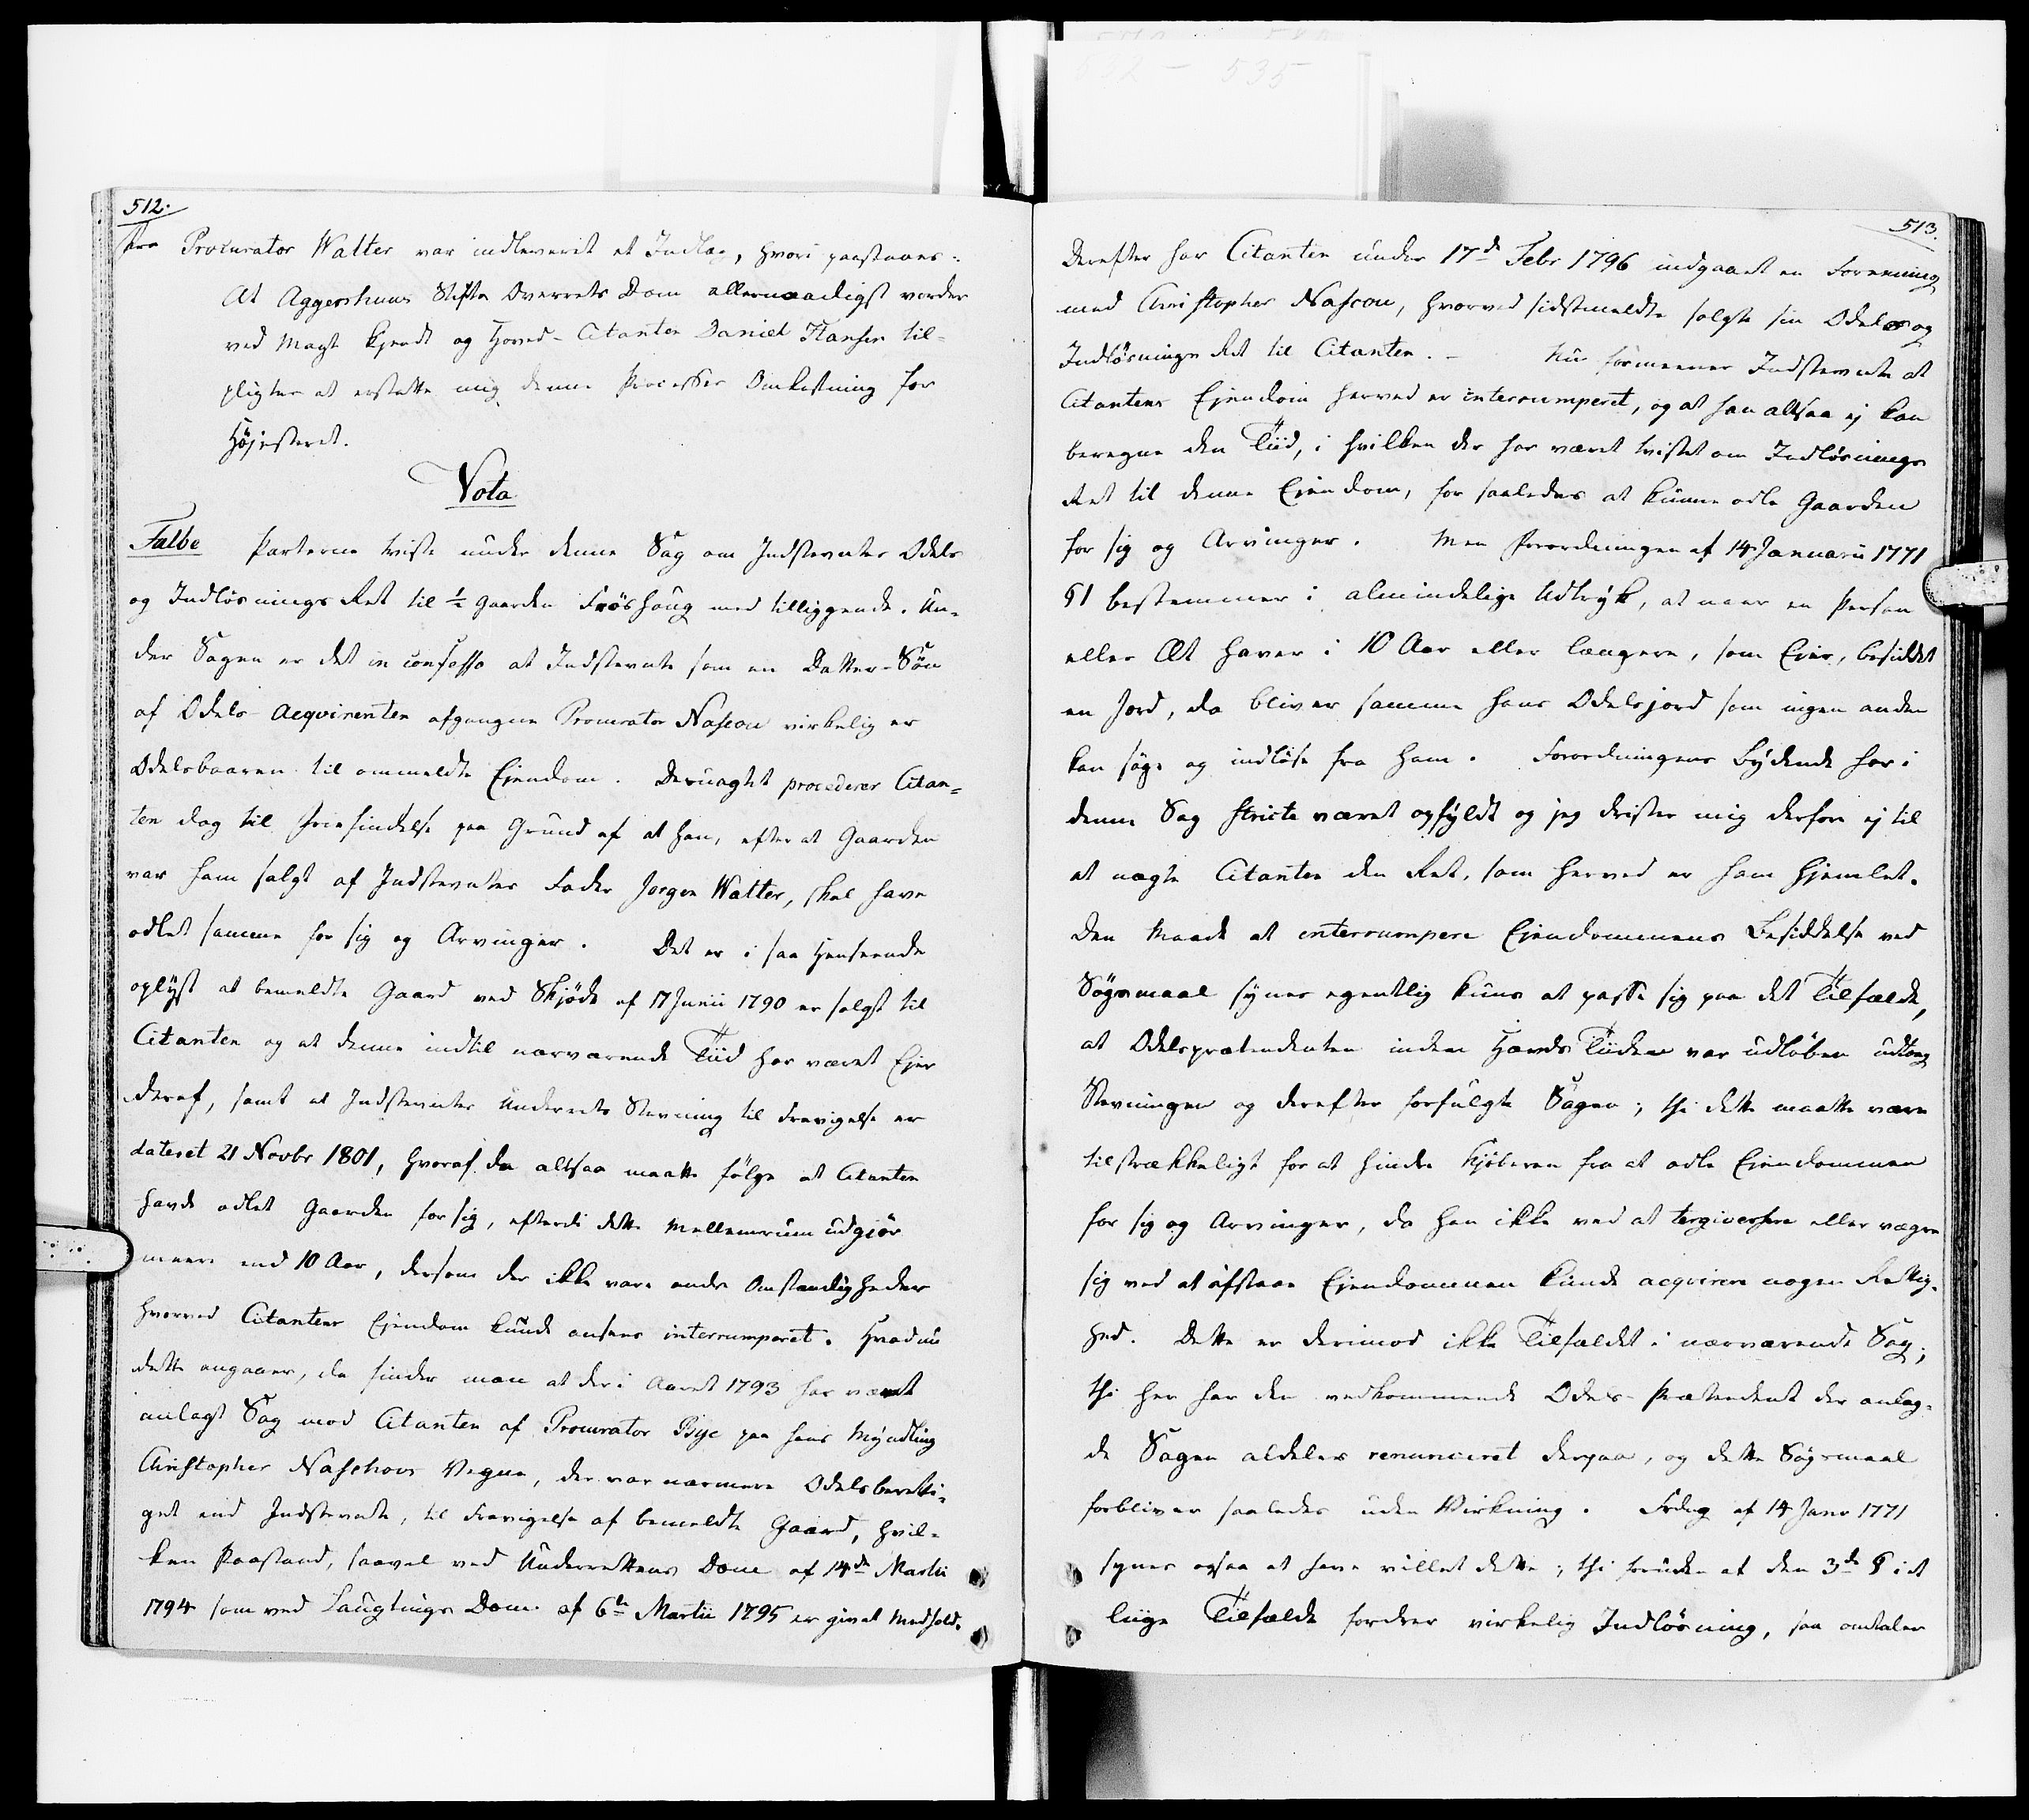 512.
Fra Procurator Walter var indleveret et Indlæg, hvori paastaaes:
At Aggershuus Stifts Overrets Dom allernaadigst vorder
ved Magt kjendt og Hoved-Citanten Daniel Hansen til-
pligtes at erstatte mig denne Processes Omkostning for
Højesteret.
Vota
Falbe Parterne tviste under denne Sag om Indstevntes Odels
og Indløsnings Ret til ½ Gaarden Frøshoug med tilliggende. Un-
der Sagen er det in confesso at Indstevnte som en Datter-Søn
af Odels-Acqvirenten afgangne Procurator Nascou virkelig er
Odelsbaaren til ommeldte Ejendom. Desuagtet procederer Citan-
ten dog til Friefindelse paa Grund af at han, efter at Gaarden
var ham solgt af Indstevntes Fader Jørgen Walter, skal have
odlet samme for sig og Arvinger. Det er i saa Henseende
oplyst at bemeldte Gaard ved Skjøde af 17 Junii 1790 er solgt til
Citanten og at denne indtil nærværende Tiid har været Ejer
deraf, samt at Indstevntes Underrets Stevning til Fravigelse er
dateret 21 Novbr 1801, hvoraf da altsaa maatte følge at Citanten
havde odlet Gaarden for sig, efterdi dette Mellemrum udgjør
meere end 10 Aar, dersom der ikke vare andre Omstændigheder
hvorved Citantens Ejendom kunde ansees interrumperet. Hvad nu
dette angaaer, da finder man at der i Aaret 1793 har været
anlagt Sag mod Citanten af Procurator Bye paa hans Myndling
Christopher Naschous Vegne, der var nærmere Odelsberetti-
get end Indstevnte, til Fravigelse af bemeldte Gaard, hvil-
ken Paastand, saavel ved Underrettens Dom af 14de Martii
1794 som ved Laugtings Dom af 6te Martii 1795 er givet Medhold.
513.
Derefter har Citanten under 17de Febr 1796 indgaaet en Forening
med Christopher Nascou, hvorved sidstmeldte solgte sin Odels og
Indløsnings Ret til Citanten. – Nu formeener Indstevnte at
Citantens Ejendom herved er interrumperet, og at han altsaa ej kan
beregne den Tiid, i hvilken der har været tvistet om Indløsnings
Ret til denne Ejendom, for saaledes at kunne odle Gaarden
for sig og Arvinger. Men Forordningen af 14 Januarii 1771
§1 bestemmer i almindelige Udtryk, at naar en Person
eller Æt haver i 10 Aar eller længere, som Ejer, besiddet
en Jord, da bliver samme hans Odelsjord som ingen anden
kan søge og indløse fra ham. Forordningens Bydende har i
denne Sag stricte været opfyldt og jeg drister mig derfore ej til
at nægte Citanten den Ret, som herved er ham hjemlet.
Den Maade at interrumpere Ejendommens Besiddelse ved
Søgsmaal synes egentlig kuns at passe sig paa det Tilfælde,
at Odelsprætendenten inden Hævds Tiiden var udløben udtog
Stevningen og derefter forfulgte Sagen; thi dette maatte være
tilstrækkeligt for at hindre Kjøberen fra at odle Ejendommen
for sig og Arvinger, da han ikke ved at tergiversere eller vægre
sig ved at afstaae Ejendommen kunde acqvirere nogen Rettig-
hed. Dette er derimod ikke Tilfældet i nærværende Sag;
thi her har den vedkommende Odels-Prætendent der anlag-
de Sagen aldeles renunceret derpaa, og dette Søgsmaal
forbliver saaledes uden Virkning. Frdng af 14 Janv 1771
synes ogsaa at have villet dette; thi foruden at den 3de § i et
liige Tilfælde fordrer virkelig Indløsning, saa omtaler